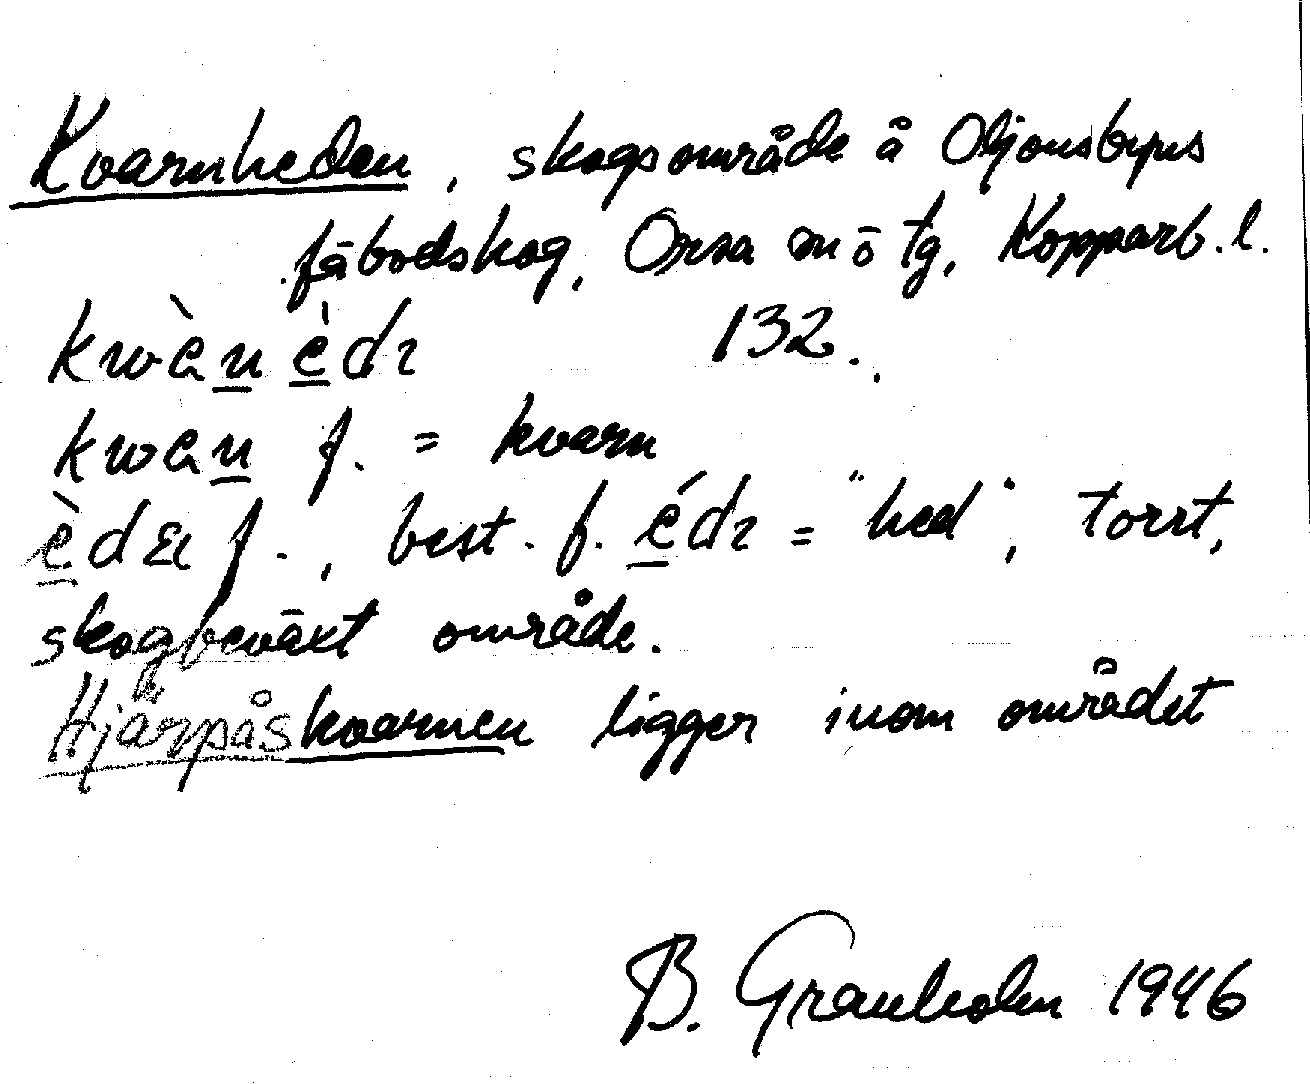 Kvarnheden, skogsområde å Oljonsbyns
fäbodskog, Orsa sn ö tg, Kopparb. l.
kwæ̀n̲è̲dɿ 132.
kwæn̲ f. = kvarn
è̲dæ f., best. f. é̲dɿ = "hed", torrt,
skogbeväxt område.
Hjärpåskvarnen ligger inom området
B. Granholm 1946